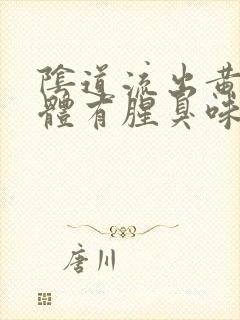 陰道流出黄
體有腥臭味
唐川